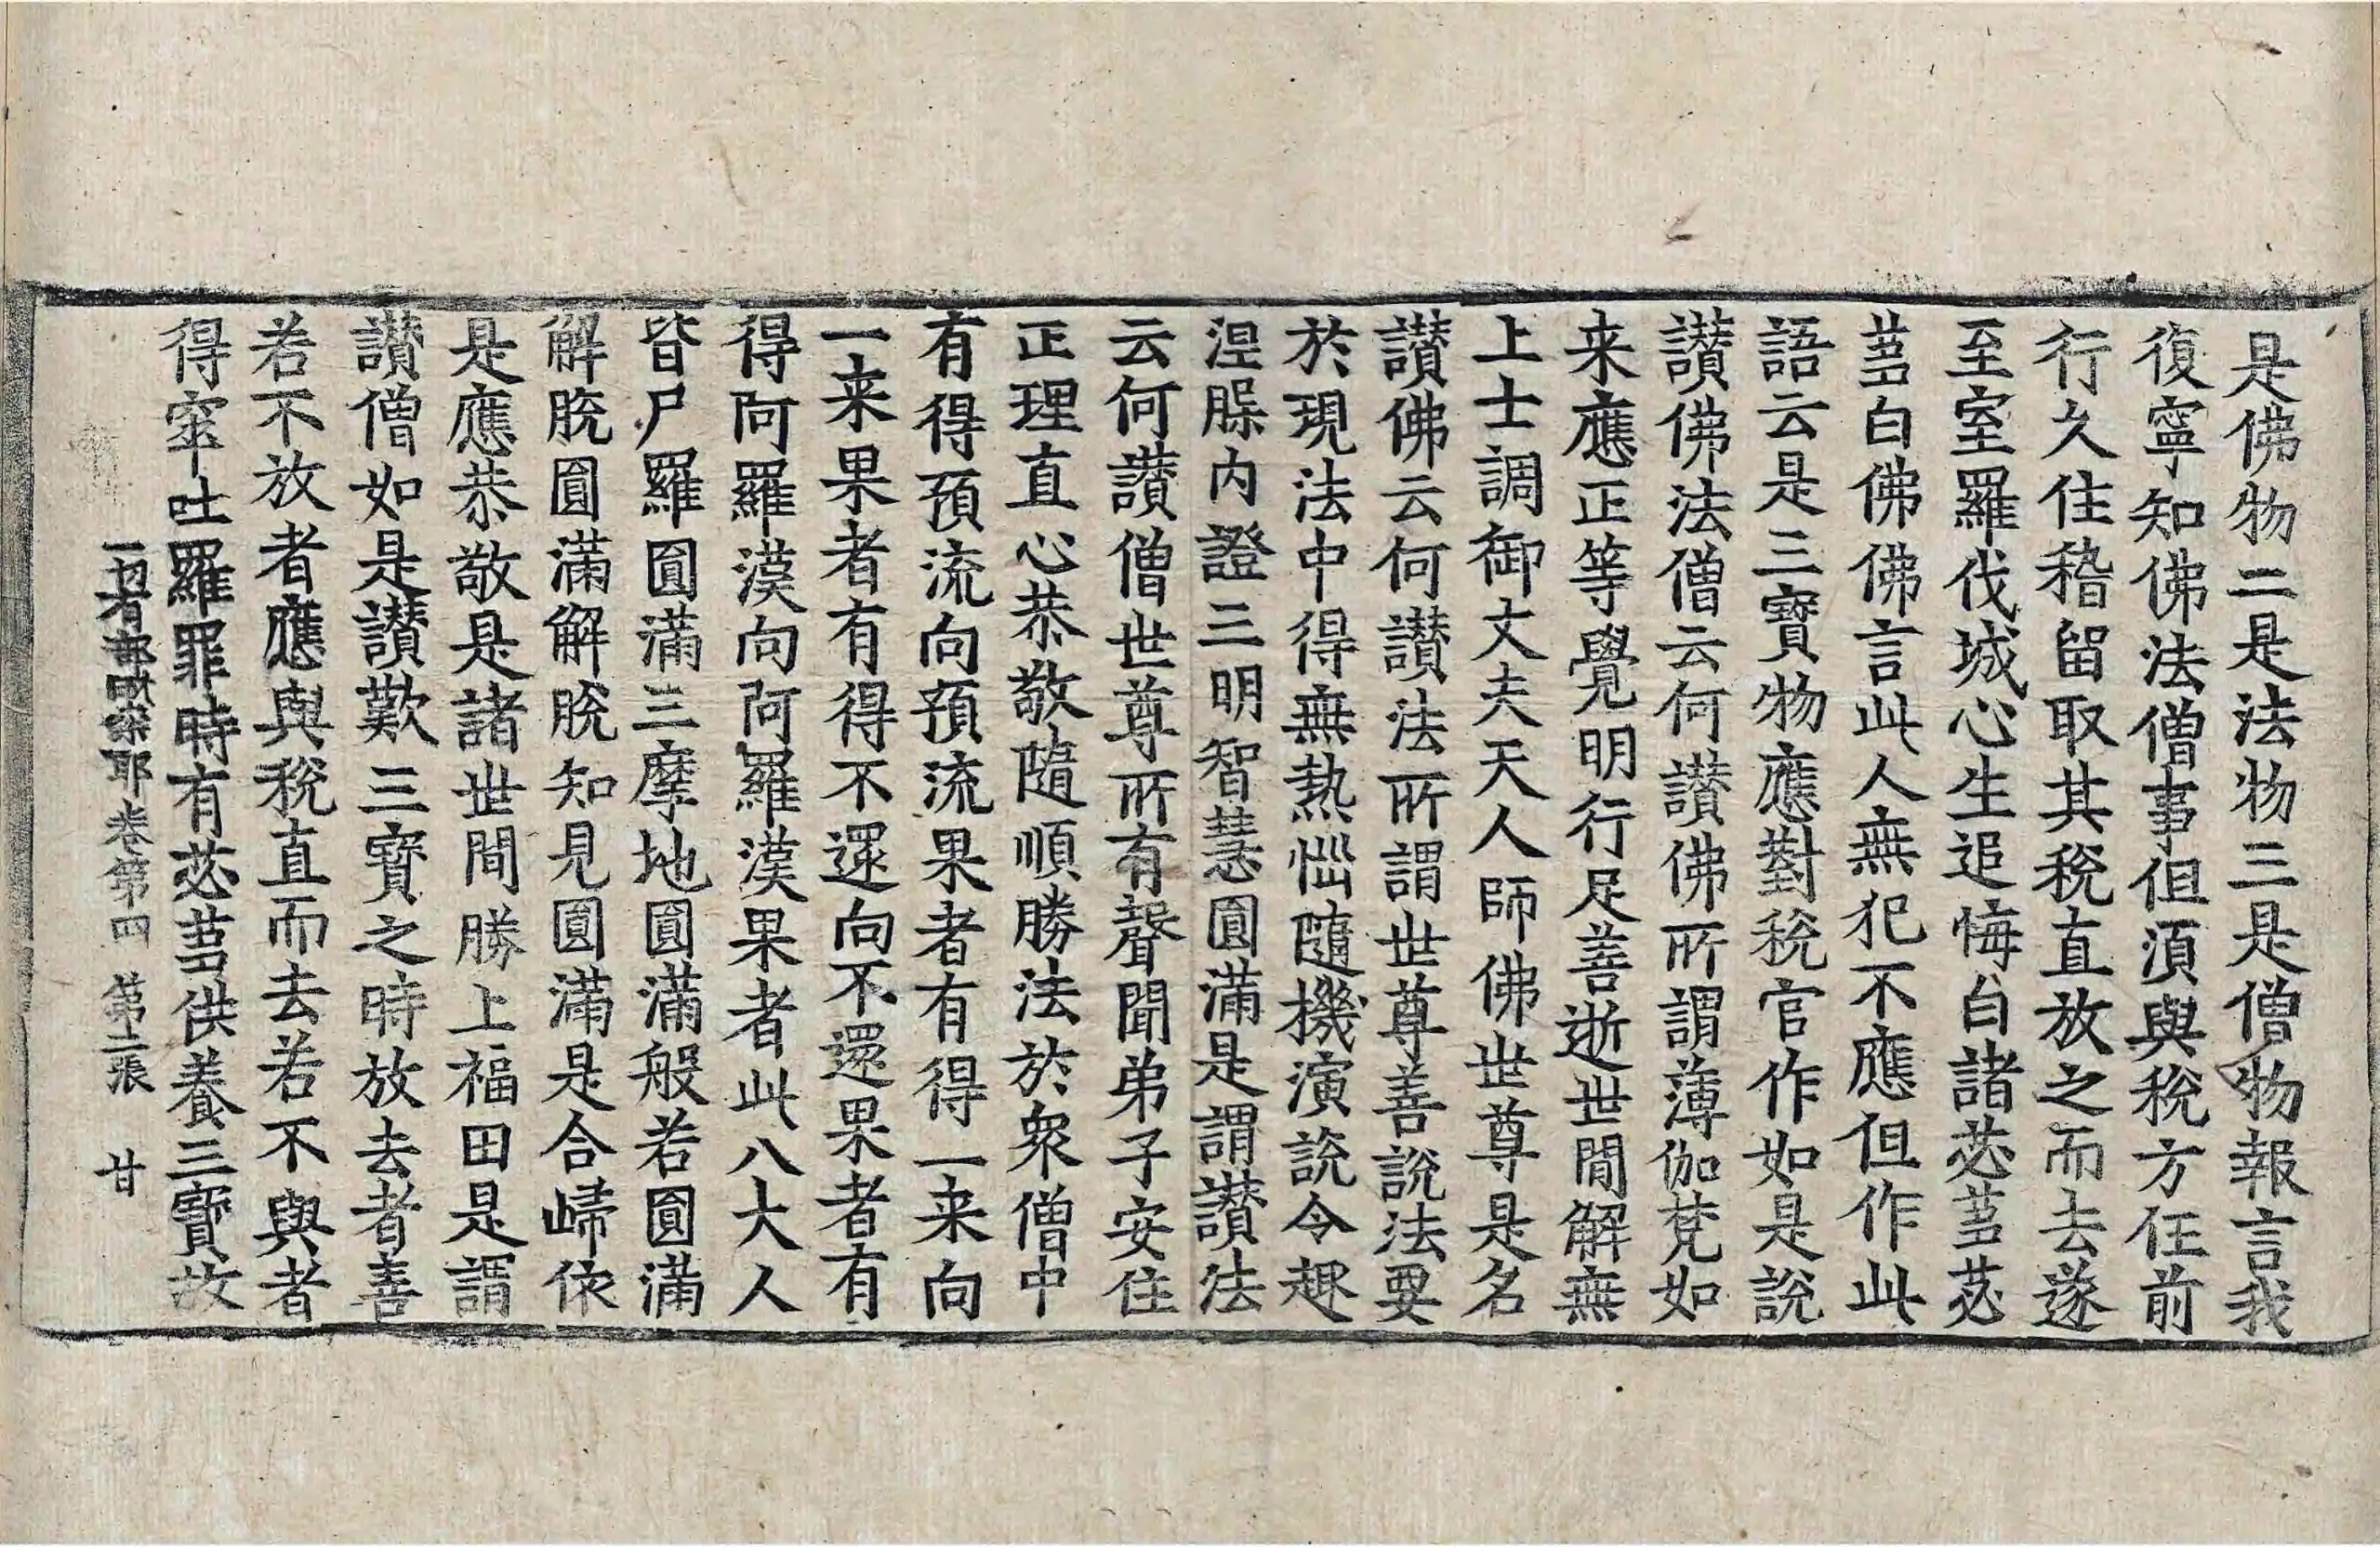 是佛物二是法物三是僧物報言我
復寧知佛法僧事但湏與稅方任前
行久住稽留取其稅直放之而去遂
至室羅伐城心生追悔白諸苾蒭苾
蒭白佛佛言此人無犯不應但作此
語云是三寶物應對稅官作如是說
讃佛法僧云何讃佛所謂薄伽梵如
来應正等覺明行足善逝世間解無
上士調御丈夫天人師佛世尊是名
讃佛云何讃法所謂世尊善說法要
於現法中得無熱惱隨機演說令趣
涅槃内證三明智慧圓滿是謂讃法
云何讃僧世尊所有聲聞弟子安住
正理直心恭敬隨順勝法於衆僧中
有得預流向預流果者有得一来向
一来果者有得不還向不還果者有
得阿羅漢向阿羅漢果者此八大人
皆尸羅圓滿三摩地圓滿般若圓滿
解脫圓滿解脫知見圓滿是合歸依
是應恭敬是諸世間勝上福田是謂
讃僧如是讃歎三寶之時放去者善
若不放者應與稅直而去若不與者
得窣吐羅罪時有苾蒭供養三寶故
一切有部毗柰耶卷第四 第十二張 甘